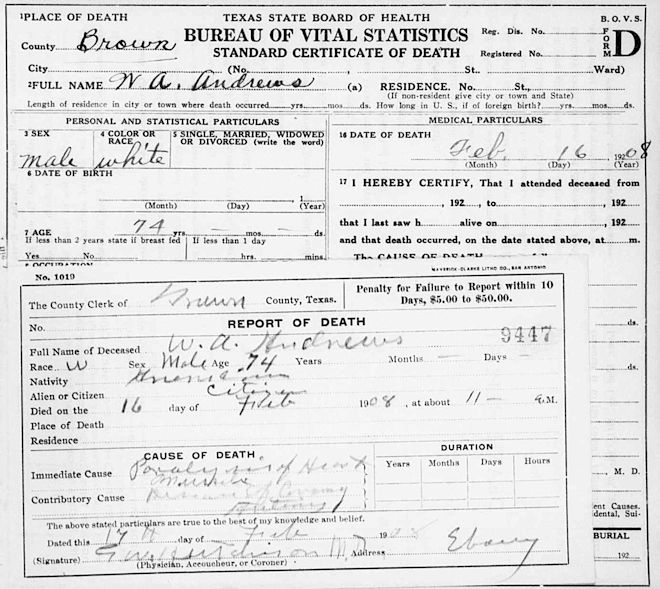 1PLACE OF DEATH
TEXAS STATE BOARD OF HEALTH
B. O. V. S.
County Brown
BUREAU OF VITAL STATISTICS
Reg. Dis. No.
FORM D
STANDARD CERTIFICATE OF DEATH
Registered No.
City (No. , St., Ward)
2FULL NAME W. A. Andrews (a) RESIDENCE. No. St.,
(If non-resident give city or town and State)
Length of residence in city or town where death occurred yrs. mos. ds. How long in U. S., if of foreign birth? yrs. mos. ds.
PERSONAL AND STATISTICAL PARTICULARS
MEDICAL PARTICULARS
3 SEX
4 COLOR OR RACE
5 SINGLE, MARRIED, WIDOWED OR DIVORCED (write the word)
male white
16 DATE OF DEATH
Feb. 16 19208
(Month) (Day) (Year)
6 DATE OF BIRTH
1
(Month) (Day) (Year)
17 I HEREBY CERTIFY, That I attended deceased from
, 192 , to , 192
7 AGE 74 yrs. — mos. — ds.
that I last saw h alive on , 192
If less than 2 years state if breast fed
If less than 1 day
and that death occurred, on the date stated above, at m.
Yes No hrs. mins.
The CAUSE OF DEATH
8 OCCUPATION
MAVERICK-CLARKE LITHO CO., SAN ANTONIO
No. 1019
The County Clerk of Brown County, Texas.
Penalty for Failure to Report within 10 Days, $5.00 to $50.00.
No.
REPORT OF DEATH
9447
Full Name of Deceased W. A. Andrews
Race W Sex Male Age 74 Years Months — Days —
Nativity
Alien or Citizen Citizen
Died on the 16 day of Feb 1908, at about 11 — a M.
Place of Death
Residence
CAUSE OF DEATH
DURATION
Immediate Cause Paralysis of Heart
Muscle
Years Months Days Hours
Contributory Cause
The above stated particulars are true to the best of my knowledge and belief.
Dated this 17th day of Feb 1908
(Signature) Hutchison M.D. Address Ebony
(Physician, Accoucheur, or Coroner)
ds.
ds.
M. D.
ent Causes.
dental, Sui-
BURIAL
192